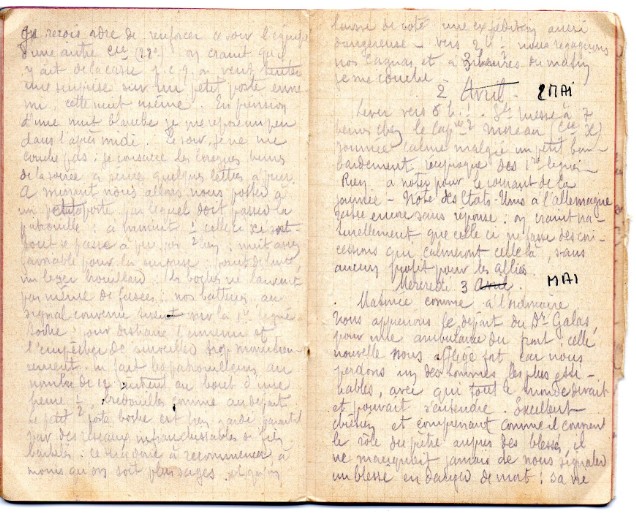 Je reçois ordre de renforcer ce soir l'équipe
d'une autre Cie (22e) on craint qu'il
y ait de la casse p.c.q. on veut tenter
une surprise sur un petit poste enne
mi, cette nuit même. En prévision
d'une nuit blanche je me repose un peu
dans l'après midi. Le soir, je ne me
couche pas : je consacre les longues heures
de la soirée à écrire quelques lettres
A minuit nous allons nous poster à
un petit poste par lequel doit passer la
patrouille : à minuit ½ celle-ci sort
tout se passe à peu près bien : nuit assez
favorable pour la surprise :
un léger brouillard : les boches ne lancent
pas même de fusées : nos batteries au
signal convenu tirent sur la 1re ligne
boche : pour distraire l'ennemi et
l'empêcher de surveiller trop minutieu-
sement.
nombre de 12 rentrent au bout d'une
heure ½ bredouilles comme au départ
le petit poste boche est bien gardé garanti
par des réseaux infranchissables de fils
barbelés : ce sera donc à recommencer à
moins qu'on soit plus sages et qu'on
laisse de côté une expédition aussi
dangereuse - vers 2h ½ nous regagnons
nos cagnas et à 3 heures du matin
je me couche
2 Avril - 2 MAI
Lever vers 6h. : Ste messe à 7
heures chez le Capne Moreau (Cie X)
journée calme malgré un petit bom-
bardement réciproque des 1res lignes -
Rien à noter pour le courant de la
journée - Note des Etats-Unis à l'Allemagne
reste encore sans réponse : on craint na-
turellement que celle ci ne fasse des con-
cessions qui calmeront celle là, sans
aucun profit pour les alliés.
Mercredi 3 Avril. MAI
. Matinée comme à l'ordinaire
Nous apprenons le départ du Dr Galas,
pour une ambulance du front : cette
nouvelle nous afflige fort car nous
perdons un des hommes les plus esti-
mables, avec qui tout le monde
et pouvait s'entendre - Excellent
chrétien et comprenant comme il convient
le rôle du prêtre auprès des blessés, il
ne manquait jamais de nous signaler
un blessé en danger de mort : sa vie